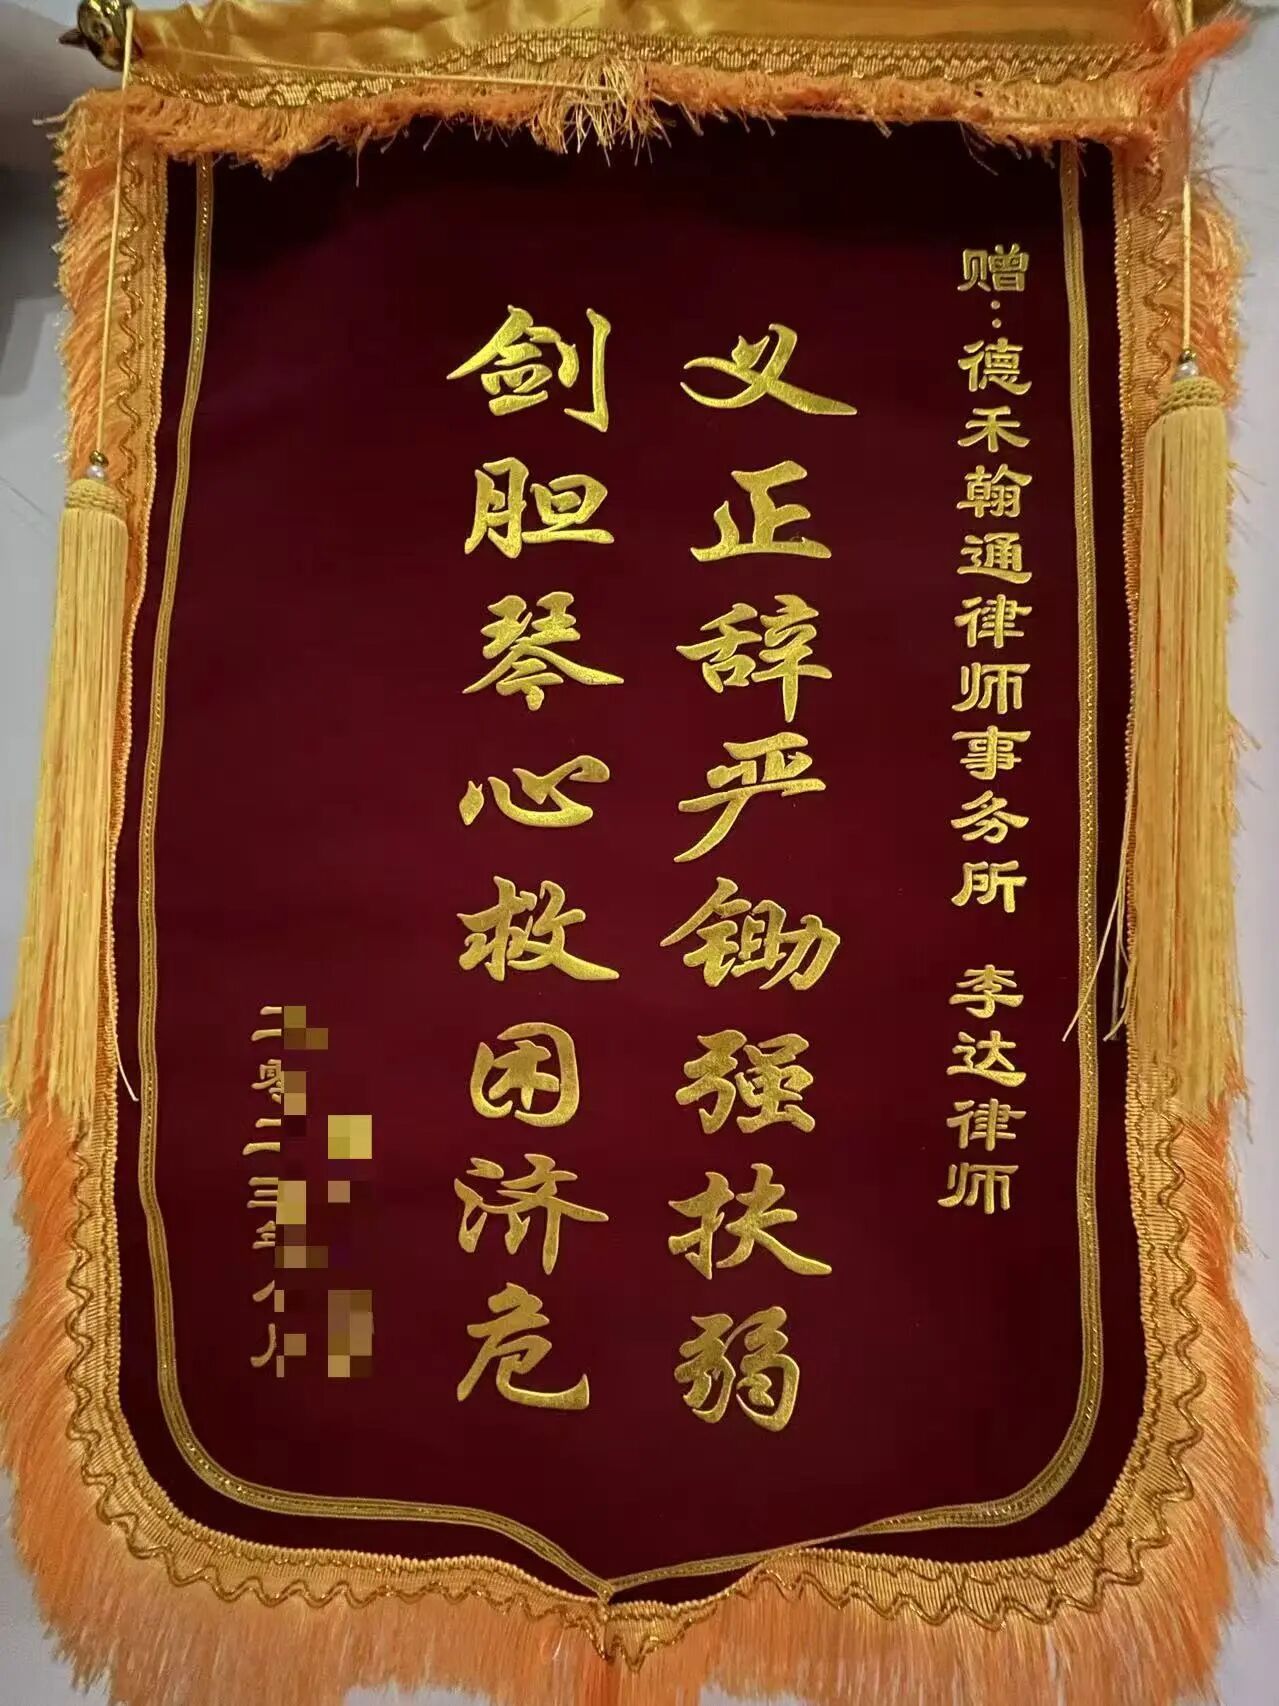 赠：德禾翰通律师事务所 李达律师
义正辞严锄强扶弱
剑胆琴心救困济危
二零二三年